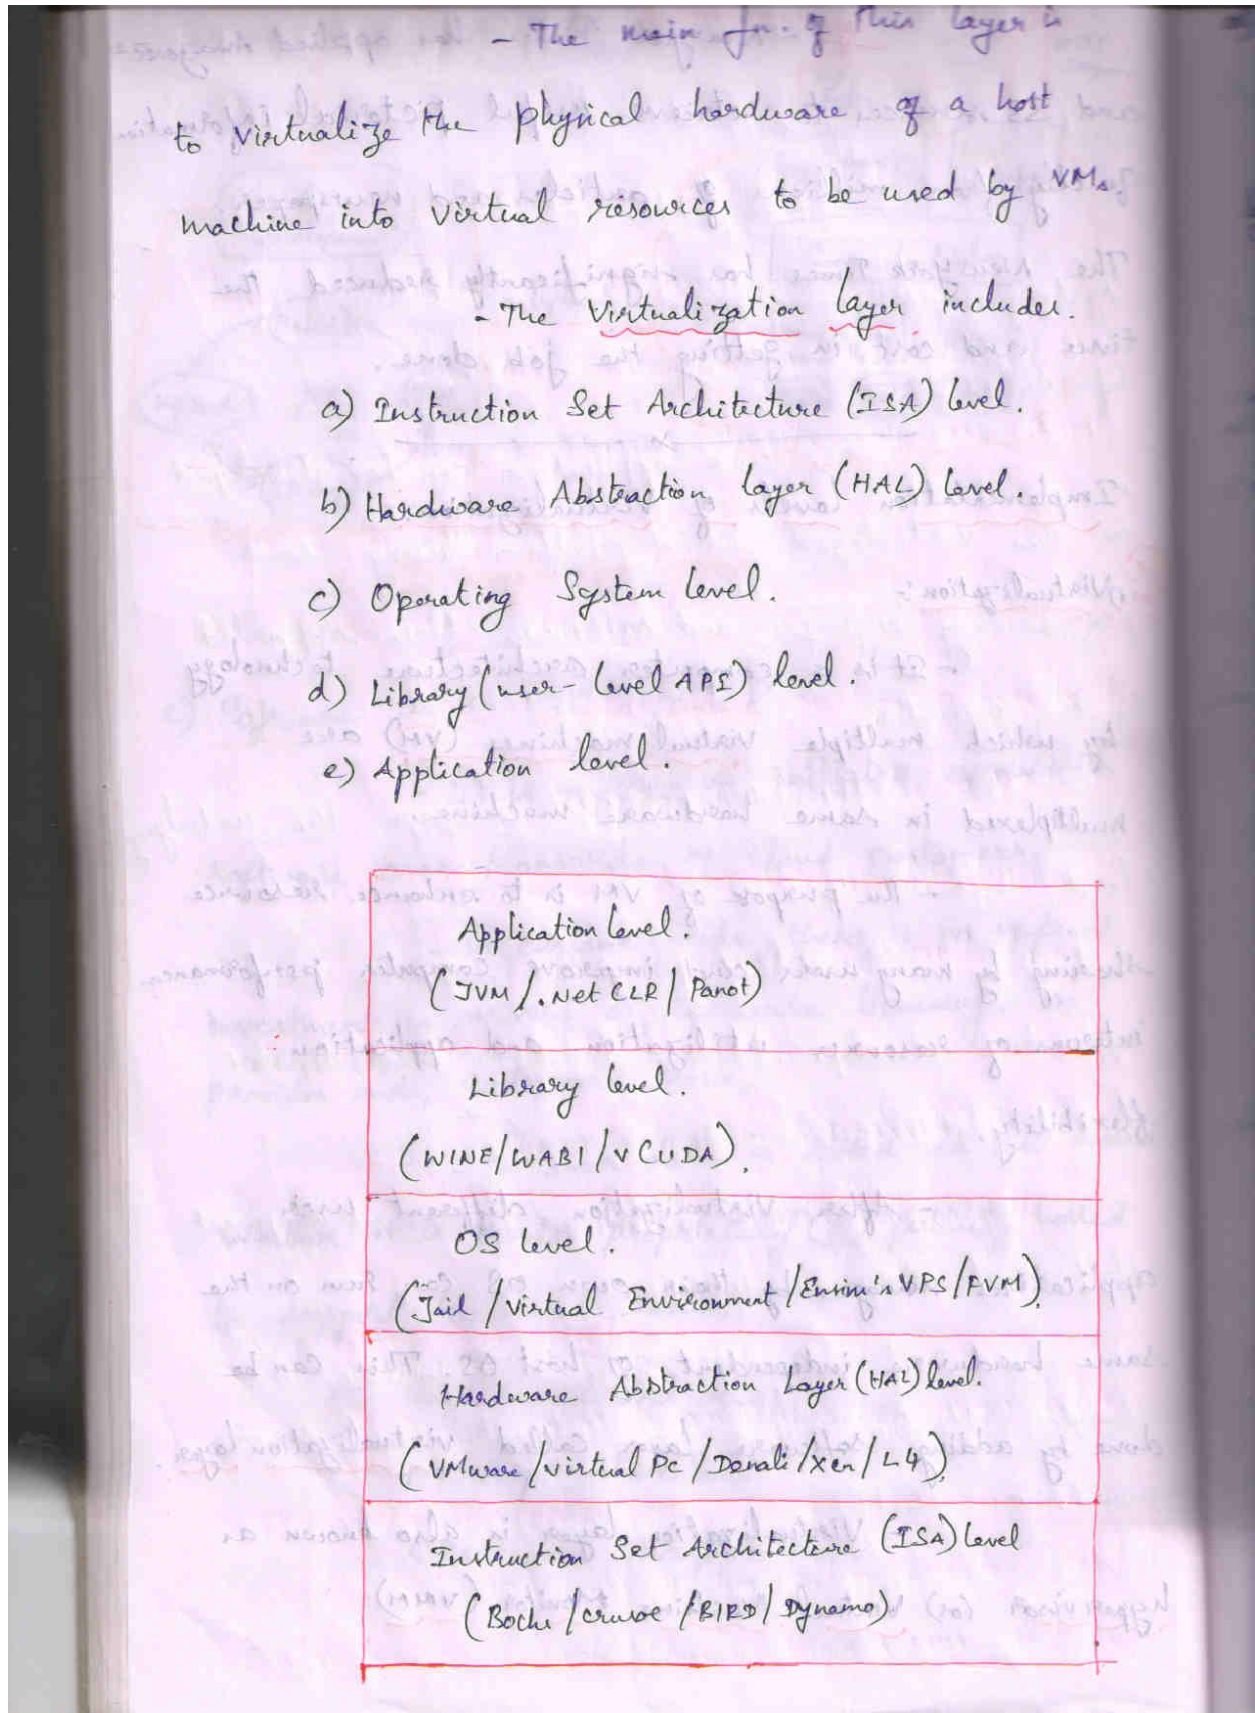 - The main fn. of this layer is
to virtualize the physical hardware of a host
machine into virtual resources to be used by VMs.
- The Virtualization layer includes.
a) Instruction Set Architecture (ISA) level.
b) Hardware Abstraction layer (HAL) level.
c) Operating System level.
d) Library (user-level API) level.
e) Application level.
Application level.
(JVM / .Net CLR / Panot)
Library level.
(WINE/WABI/VCUDA).
OS level.
(Jail / Virtual Environment / Ensim's VPS / FVM).
Hardware Abstraction Layer (HAL) level.
(VMware / Virtual PC / Denali / Xen / L4).
Instruction Set Architecture (ISA) level
(Bochs / crusoe / BIRD / Dynamo)